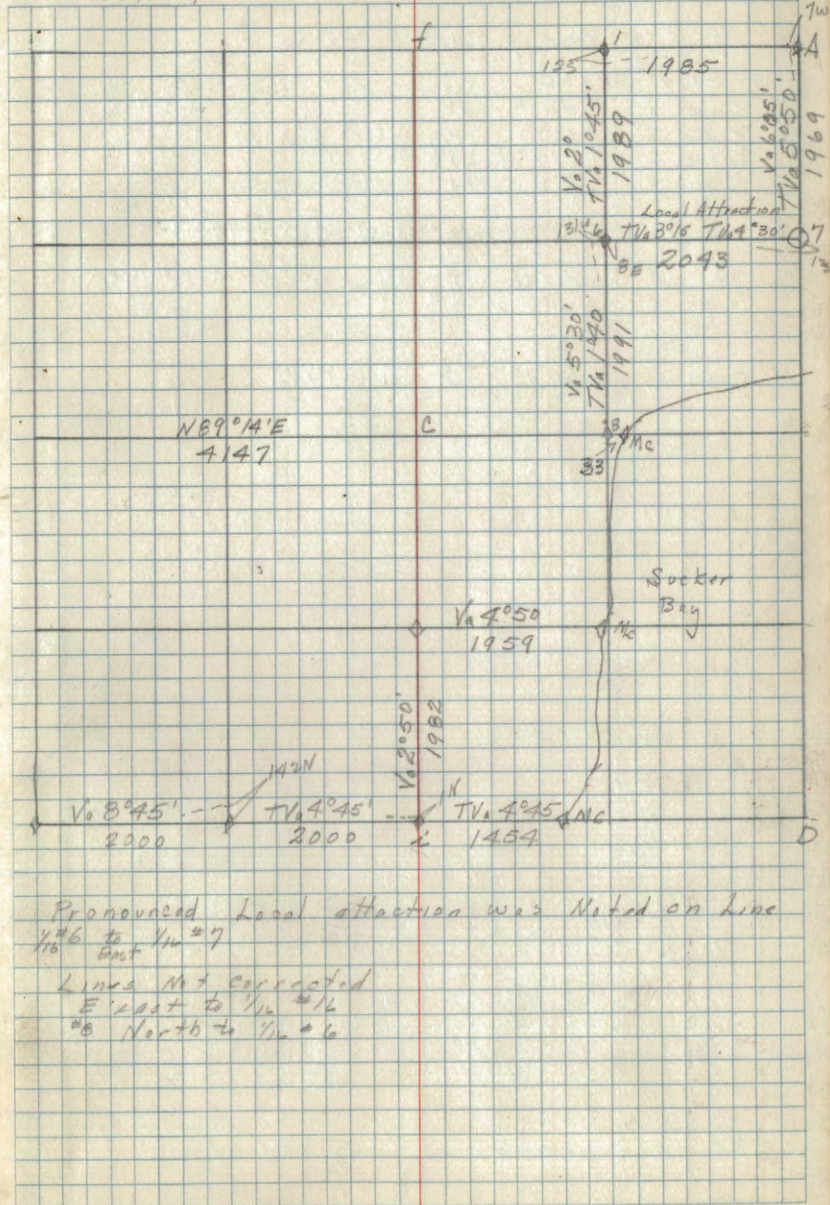 7W
f 1 A
125 1985
Va 2°
TVa 1°45'
1989
Va 6°35'
TVa 5°50'
1969
Local Attraction
131 6 TVa 3°15 TVa 4°30' 7
8E 2043
Va 5°30'
TVa 1°40'
1991
N89°14'E C
4147
28
7 Mc
33
Sucker
Bay
Va 4°50 Mc
1959
Va 2°50'
1982
142N
Va 8°45' TVa 4°45' N TVa 4°45 MC
2000 2000 i 1454 D
Pronounced Local attaction was Noted on Line
1/16 #6 to East 1/16 #7
Lines Not corrected
E east to 1/16 #16
#8 North to 1/16 #6